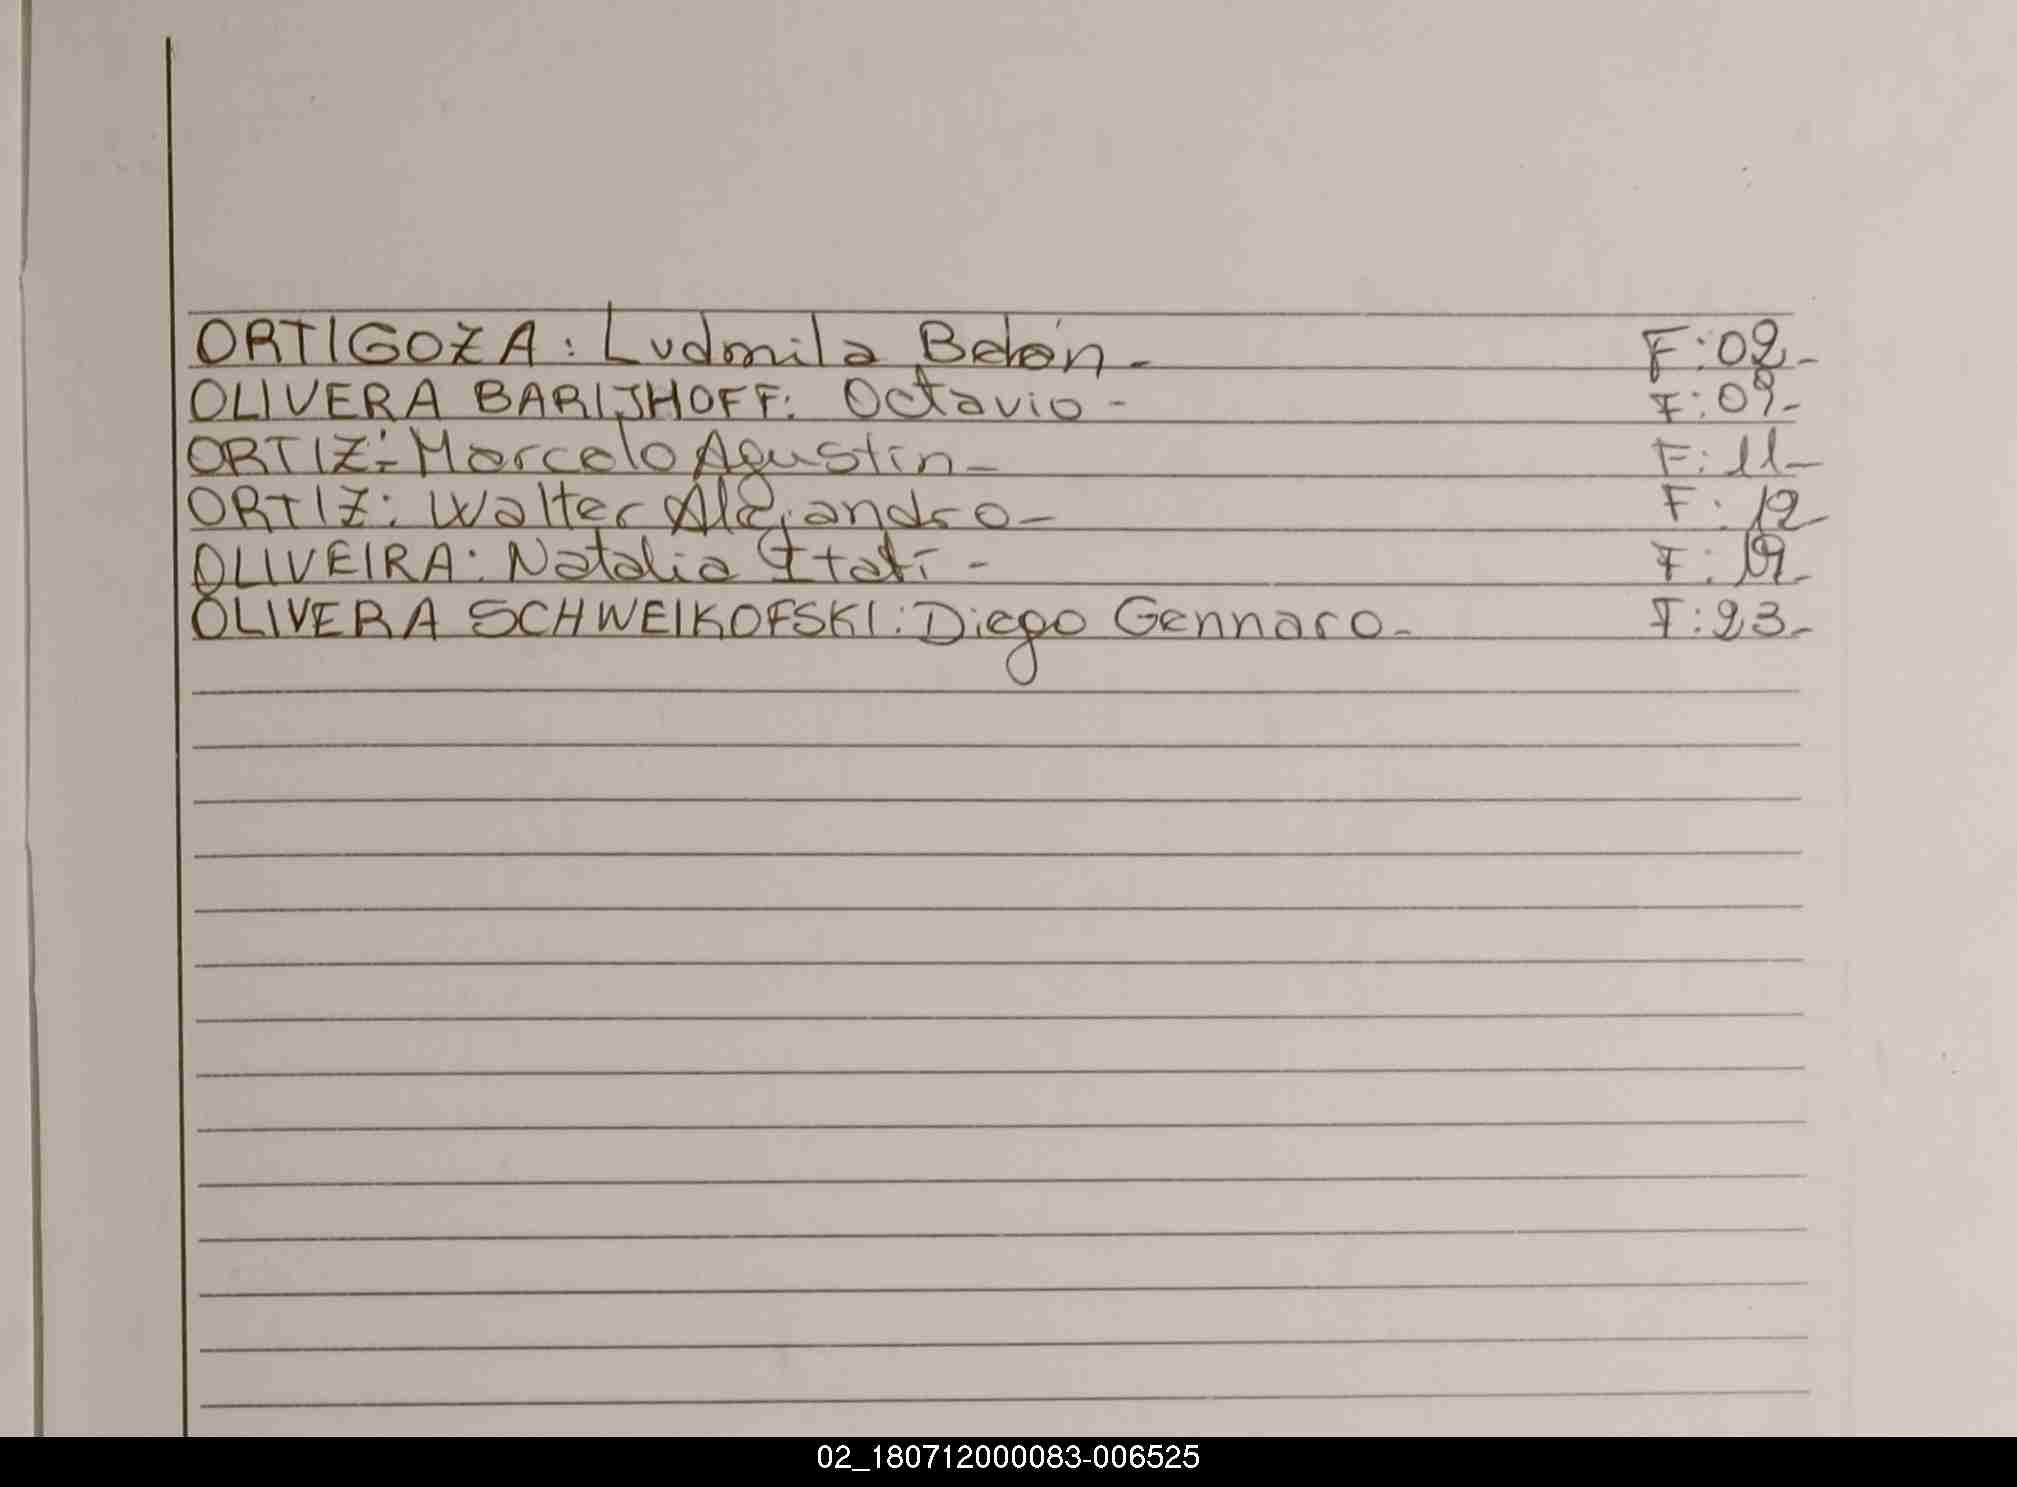 ORTIGOZA: Ludmila Belén- F:02-
OLIVERA BARIJHOFF: Octavio- F:09-
ORTIZ:- Marcelo Agustín- F:11-
ORTIZ: Walter Alejandro- F:12-
OLIVEIRA: Natalia Itatí- F:19-
OLIVERA SCHWEIKOFSKI: Diego Gennaro- F:23-
02_180712000083-006525